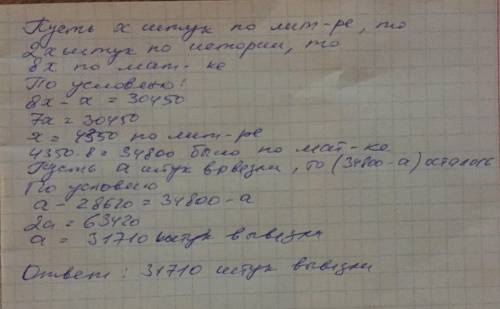 Пусть х штук по лит-ре, то
2х штук по истории, то
8х по мат-ке
По условию:
8х - х = 30450
7х = 30450
х = 4350 по лит-ре
4350·8 = 34800 было по мат-ке
Пусть а штук вывезли, то (34800-а) осталось
По условию
а - 28620 = 34800 - а
2а = 63420
а = 31710 штук вывезли
Ответ: 31710 штук вывезли